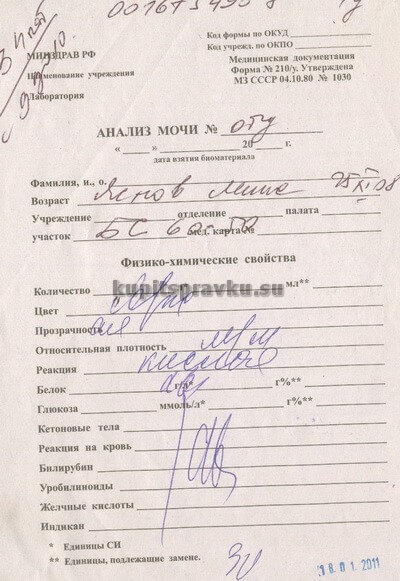 Код формы по ОКУД
Код учрежд. по ОКПО
МИНЗДРАВ РФ
Наименование учреждения
Лаборатория
Медицинская документация
Форма № 210/у. Утверждена
МЗ СССР 04.10.80 № 1030
АНАЛИЗ МОЧИ №
« » 20 г.
дата взятия биоматериала
Фамилия, и., о. Миша
Возраст
Учреждение отделение палата
участок мед. карта №
Физико-химические свойства
kupitspravku.su
Количество мл**
Цвет
Прозрачность
Относительная плотность
Реакция кислая
Белок г/л* г%**
Глюкоза ммоль/л* г%**
Кетоновые тела
Реакция на кровь
Билирубин
Уробилиноиды
Желчные кислоты
Индикан
* Единицы СИ
** Единицы, подлежащие замене.
18.01.2011